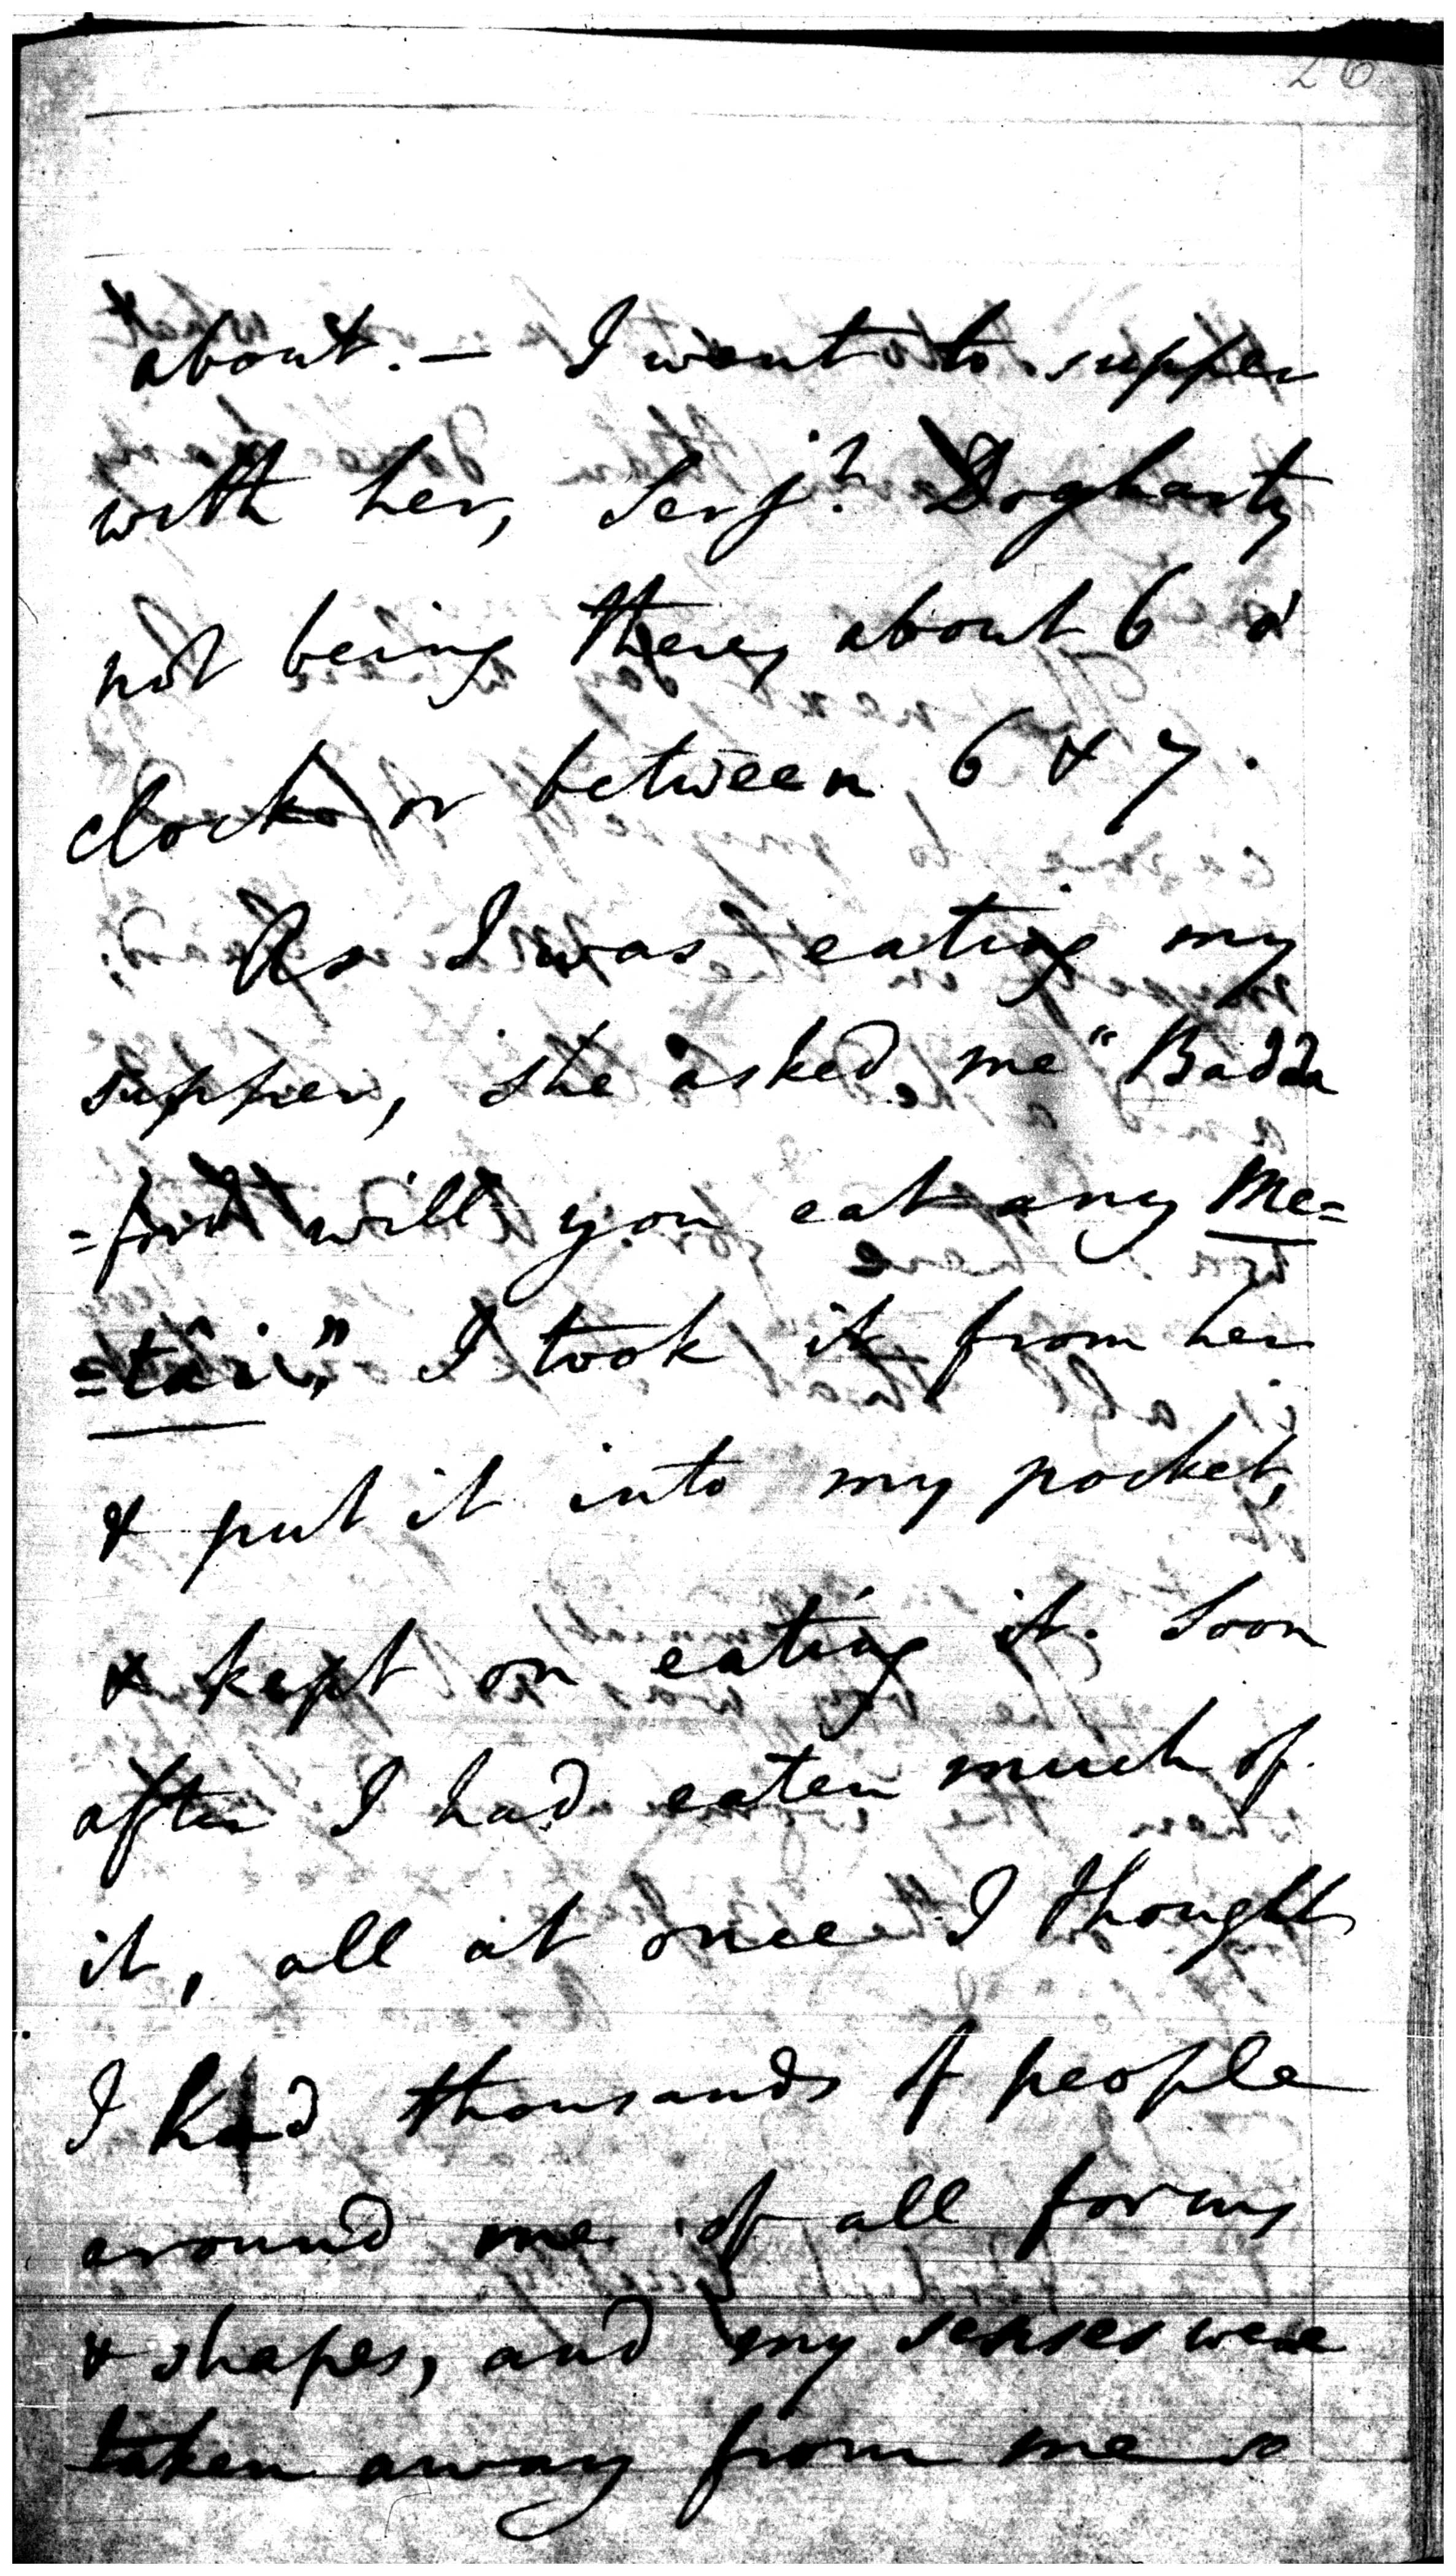 26
about. — I went to supper
with her, Serjt. Dogharty
not being there, about 6 o'
clock or between 6 & 7.
As I was eating my
supper, she asked me "Badda
=ford will you eat any Me=
=tai", I took it from her
& put it into my pocket,
& kept on eating it. Soon
after I had eaten much of
it, all at once I thought
I had thousands of people
around me of all forms
& shapes, and my senses were
taken away from me so